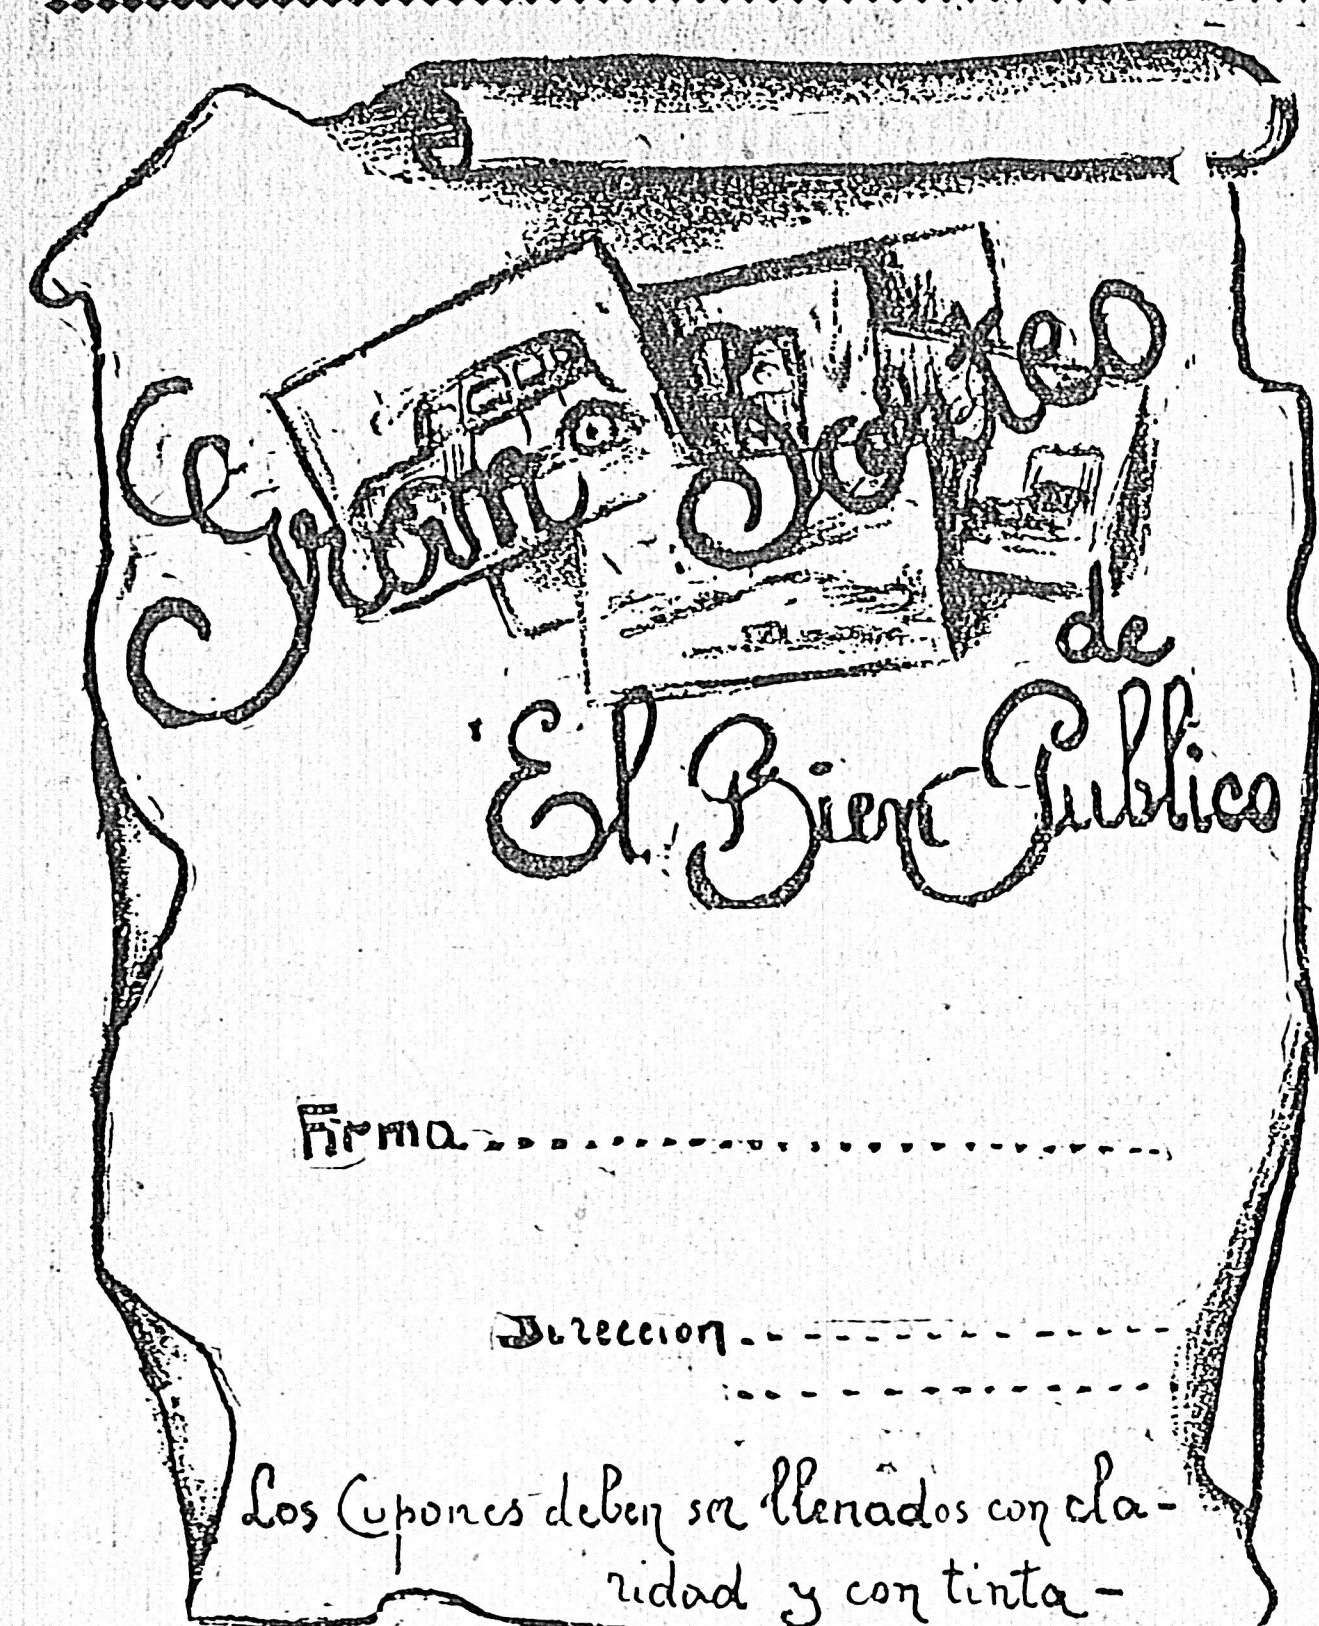 Gran Sorteo
de
El Bien Publico
Firma
Direccion
Los Cupones deben ser llenados con cla-
ridad y con tinta-